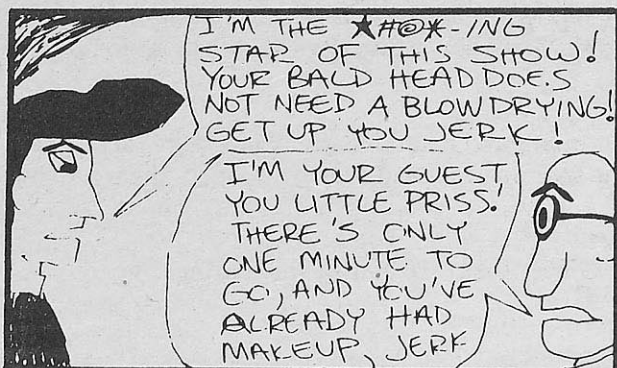 I'M THE ★#@*-ING
STAR OF THIS SHOW!
YOUR BALD HEAD DOES
NOT NEED A BLOW DRYING!
GET UP YOU JERK!
I'M YOUR GUEST
YOU LITTLE PRISS!
THERE'S ONLY
ONE MINUTE TO
GO, AND YOU'VE
ALREADY HAD
MAKEUP, JERK